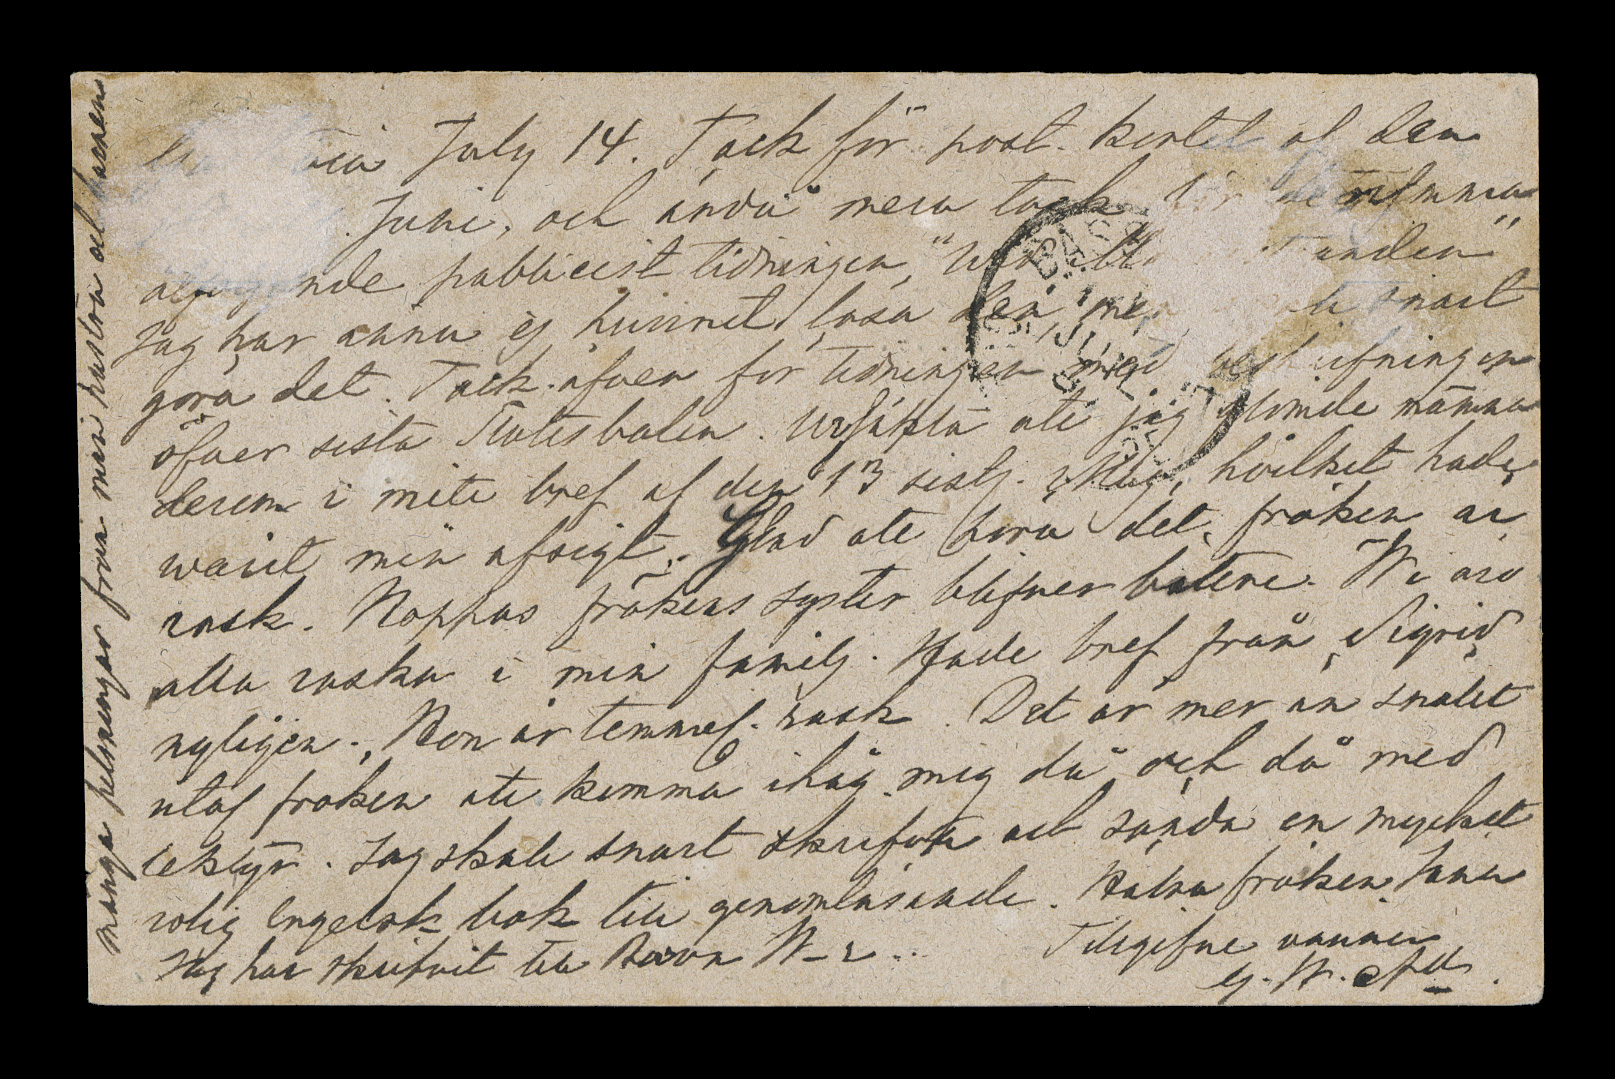 July 14. Tack för post-kortet af den
Juni, och ändå mera tack för
publicist tidningen,
Jag har ännu ej hunnit läsa den, men snart
göra det. Tack äfven för tidningen med beskrifningen
öfver sista Slottsbalen. Ursäkta att jag glömde nämna
derom i mitt bref af den 13 sistl. Maj, hvilket hade
warit min afsigt. Glad att höra det fröken är
rask. Hoppas frökens syster blifver bättre. Wi äro
alla raska i min familj. Hade bref från Sigrid
nyligen. Hon är temmel. rask. Det är mer än snällt
utaf fröken att komma ihåg mig då och då med
lektyr. Jag skall snart skrifva och sända en mycket
rolig Engelsk bok till genomläsande. Hälsa fröken
Jag har skrifvit till Baron W-r...
Tillgifne vännen
G. W.
många helsningar från min hustru och barnen